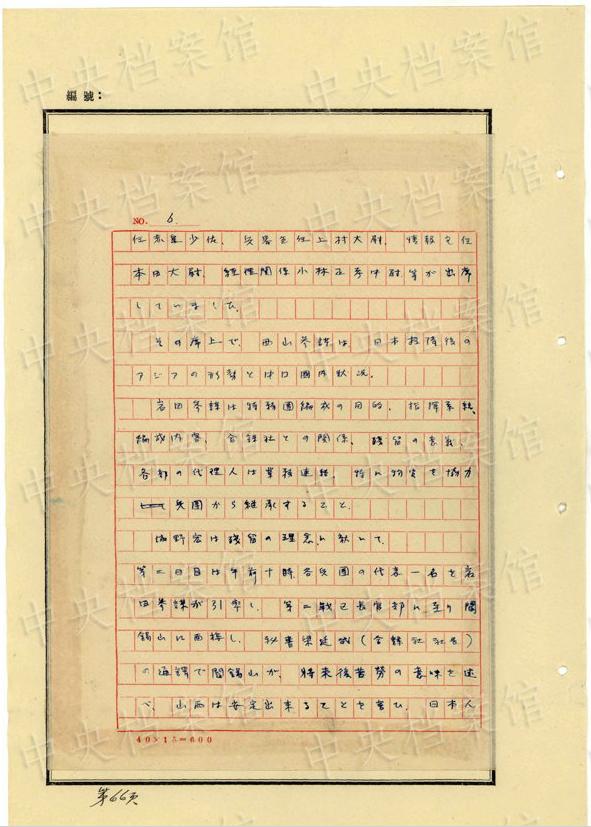 編號：
NO. 6
任赤星少佐、兵器主任上村大尉、情報主任
本田大尉、経理関係小林正孝中尉等が出席
していました。
その席上で、西山参謀は日本投降後の
アジアの形勢と日本国内状況。
岩田参謀は特務團編成の目的、指揮系統、
編成内容、合謀社との関係、残留の意義、
各部の代理人は業務連絡、特に物資を協力
兵團から継承すること。
城野宏は残留の理念に就いて、
第二日目は午前十時各兵團の代表一名を岩
田参謀が引率し、第二戦区長官部に至り閻
錫山に面接し、秘書梁延武（合謀社社長）
の通譯で閻錫山が、将来後苦労の意味を述
べ、山西は安定出来ることを言ひ、日本人
40×15=600
第66页
中央档案馆